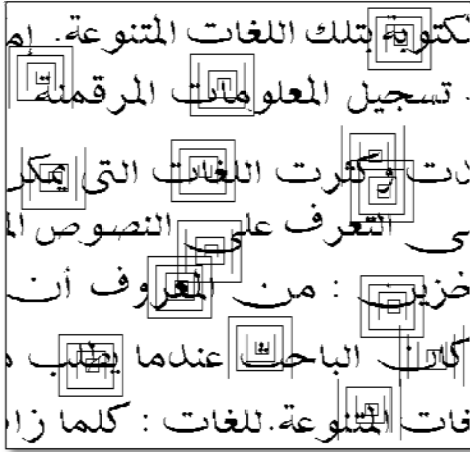 كتوبة بتلك اللغات المتنوعة. إم
. تسجيل المعلومات المرقمنة
دت وكثرت اللغات التى يمكر
ى التعرف على النصوص الم
خزين : من المعروف أن
كان الباحث عندما يطلب م
غات المتنوعة. للغات : كلما زا